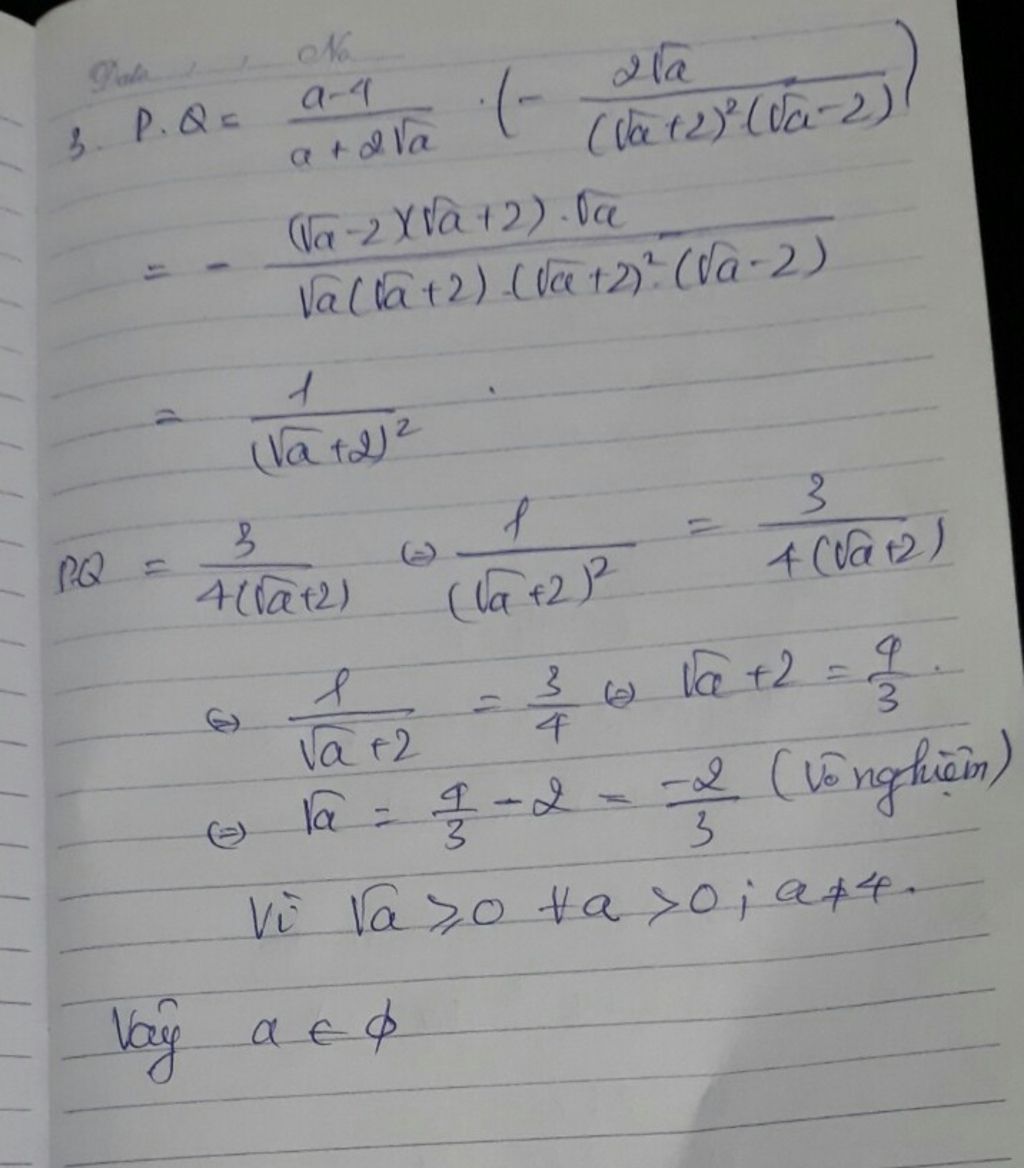 Date No
3. P.Q = \frac{a-4}{a+2\sqrt{a}} . (- \frac{2\sqrt{a}}{(\sqrt{a}+2)^2(\sqrt{a}-2)})
= - \frac{(\sqrt{a}-2)(\sqrt{a}+2).\sqrt{a}}{\sqrt{a}(\sqrt{a}+2).(\sqrt{a}+2)^2.(\sqrt{a}-2)}
= \frac{1}{(\sqrt{a}+2)^2} .
P.Q = \frac{3}{4(\sqrt{a}+2)} ⇔ \frac{1}{(\sqrt{a}+2)^2} = \frac{3}{4(\sqrt{a}+2)}
⇔ \frac{1}{\sqrt{a}+2} = \frac{3}{4} ⇔ \sqrt{a}+2 = \frac{4}{3} .
⇔ \sqrt{a} = \frac{4}{3} - 2 = \frac{-2}{3} (Vô nghiệm)
Vì \sqrt{a} ⩾ 0 ∀a > 0 ; a ≠ 4.
Vậy a ∈ ϕ